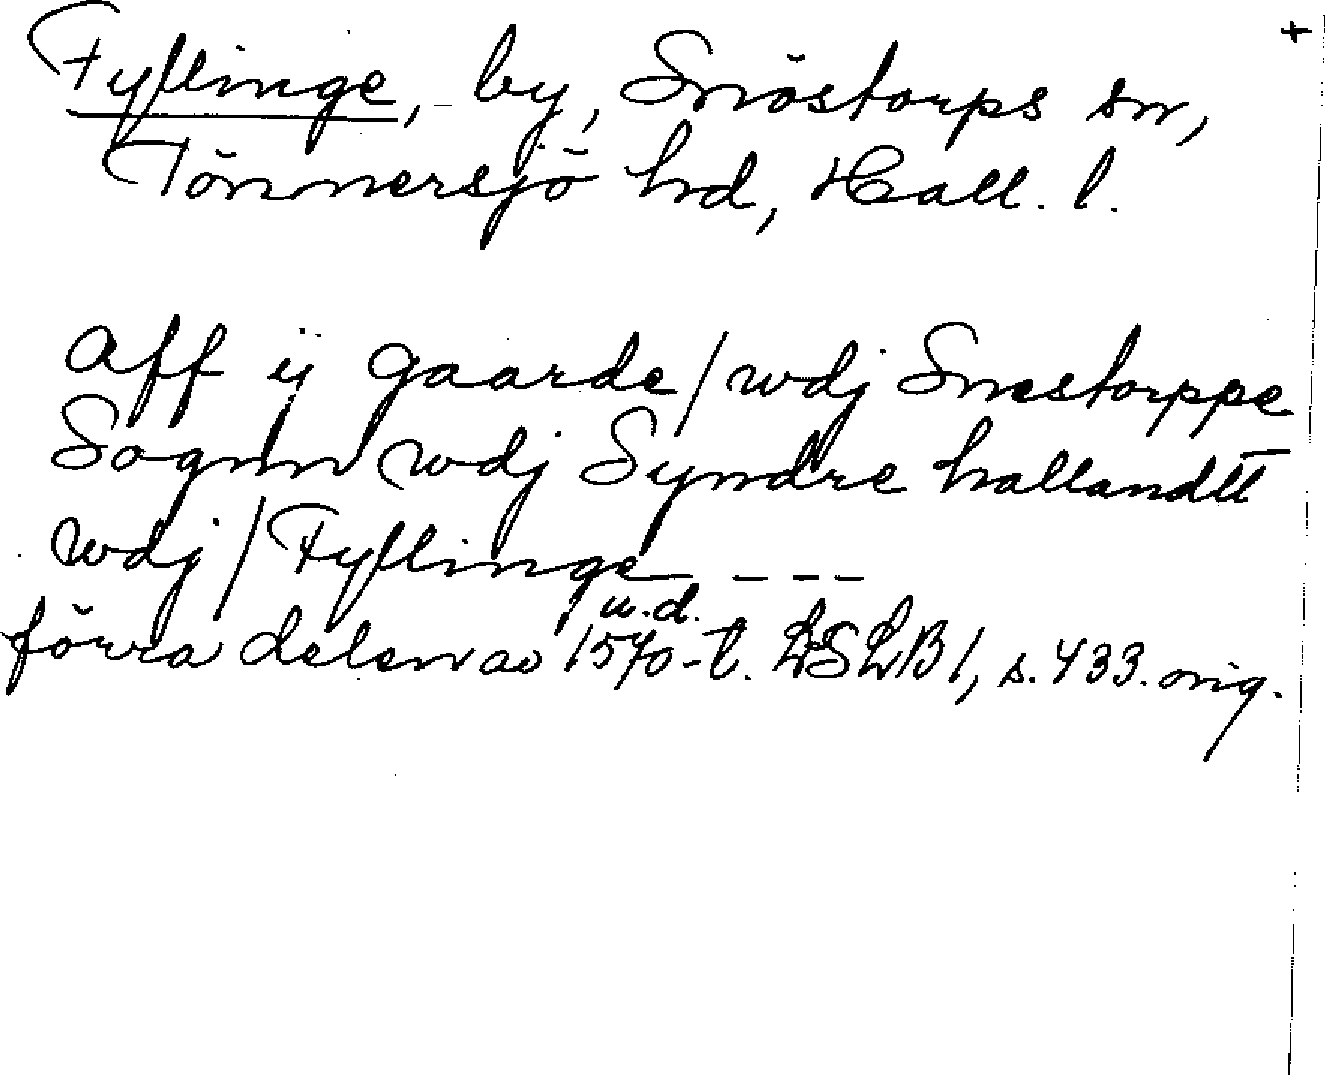 +
Fyllinge, by, Snöstorps sn,
Tönnersjö hd, Hall. l.
Aff ij gaarde/wdj Snestorppe
Sognn wdj Syndre hallandtt
wdj/Fyflinge ----
u.d.
förra delen av 1570-t. LSLB1, s. 433. orig.